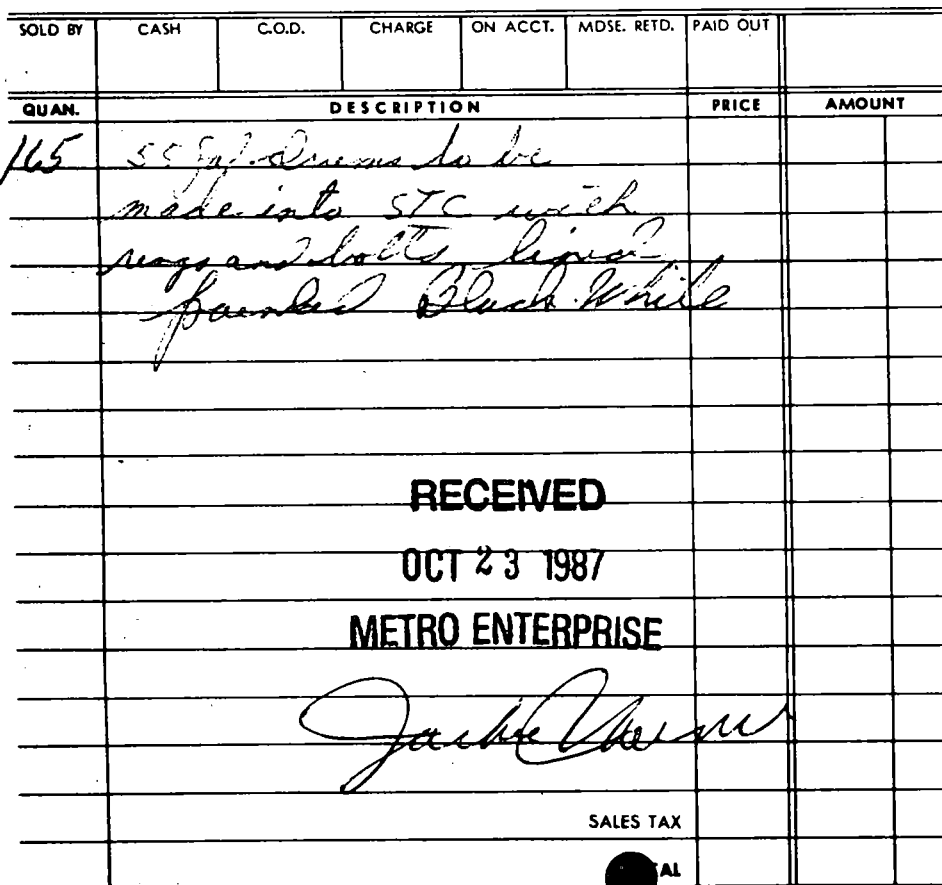 SOLD BY CASH C.O.D. CHARGE ON ACCT. MDSE. RETD. PAID OUT
QUAN. DESCRIPTION PRICE AMOUNT
165 55 Gal. Drums to be
made into STC with
rings and bolts lined
painted Black White
RECEIVED
OCT 23 1987
METRO ENTERPRISE
Jackie
SALES TAX
AL